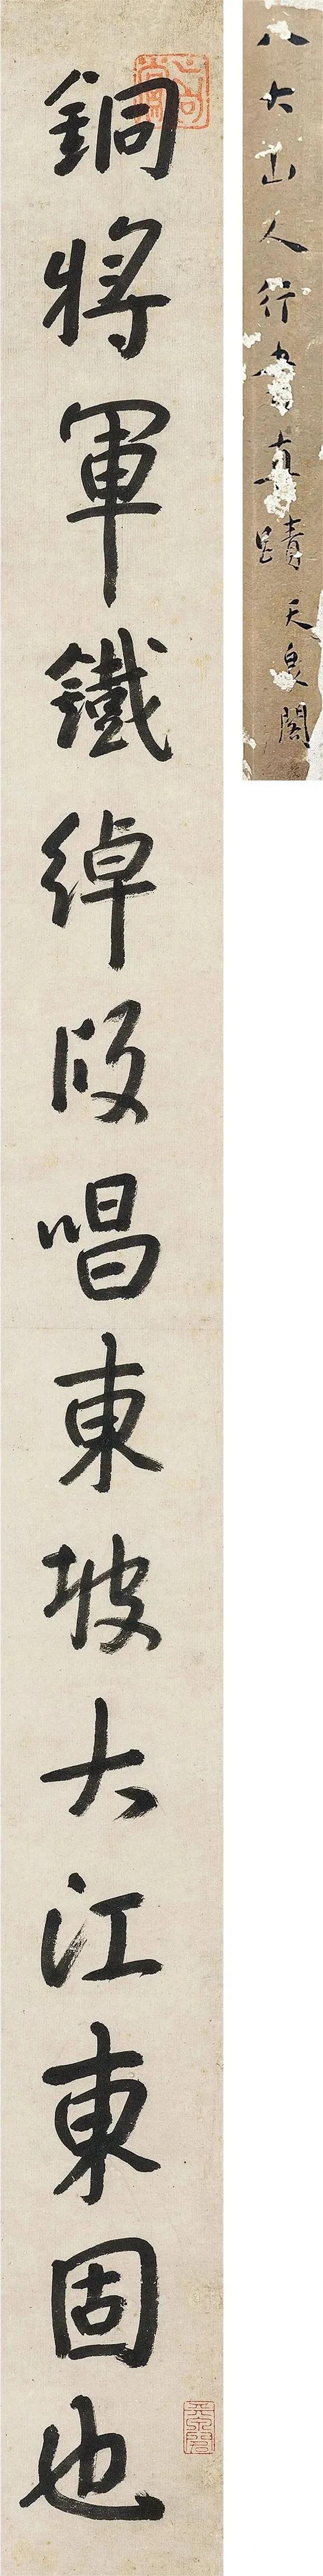 八大山人行書真蹟 天泉閣
銅將軍鐵綽段唱東坡大江東固也